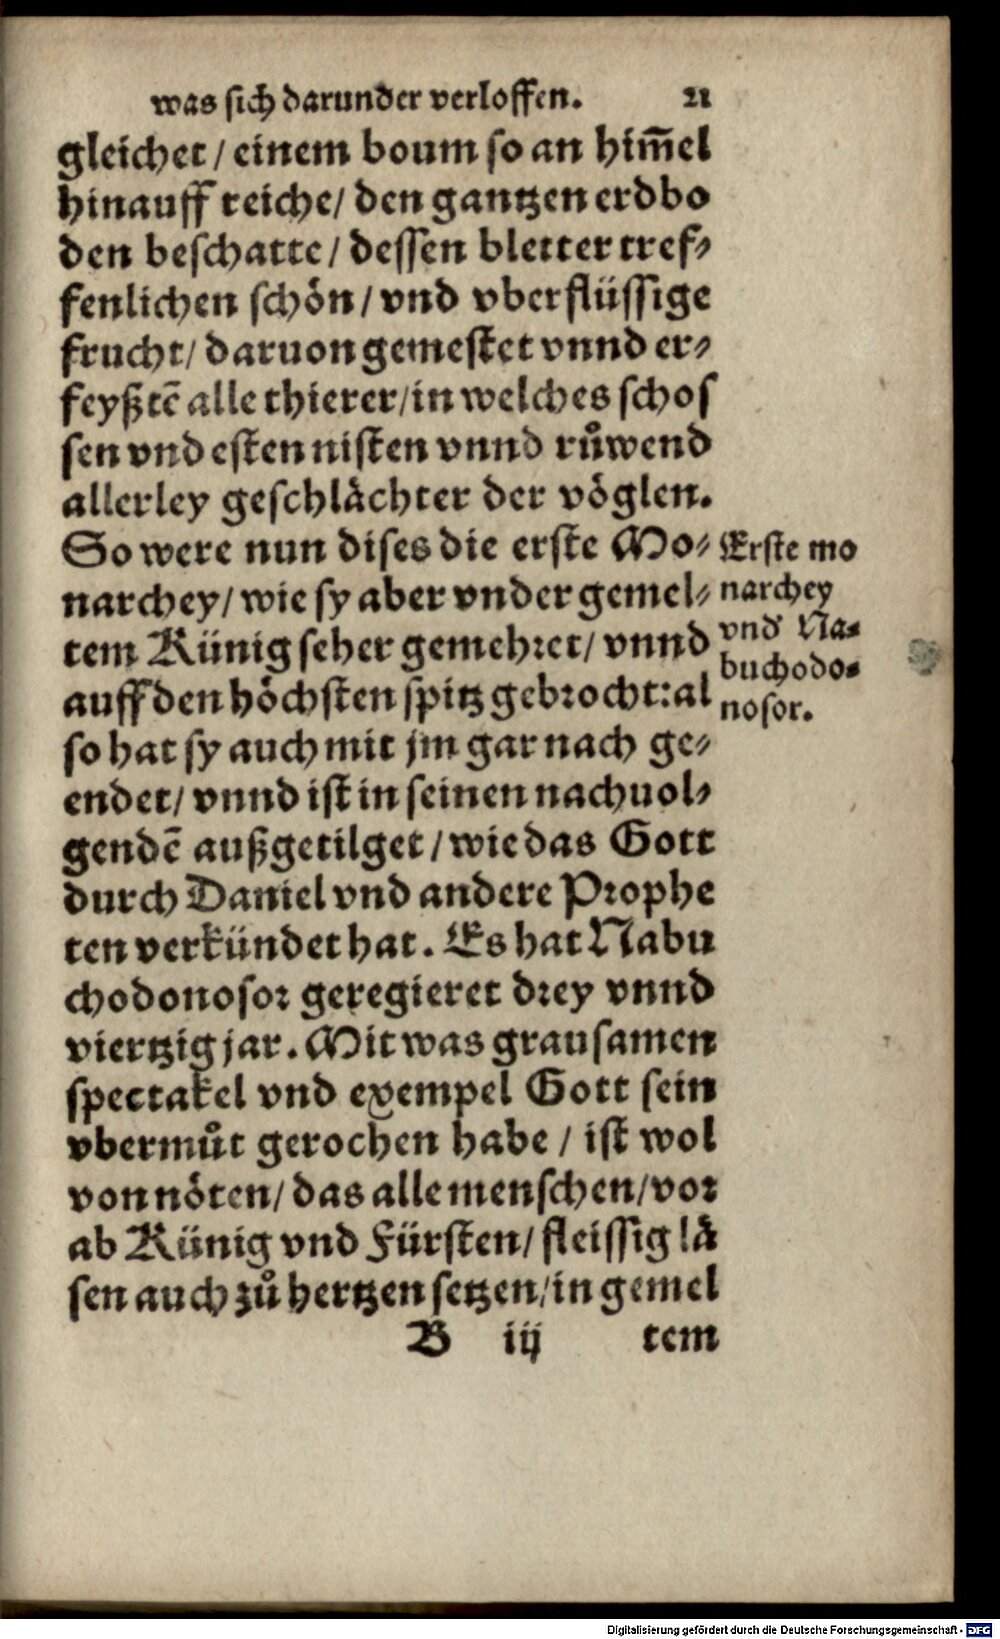 was sich darunder verloffen. 21
gleichet / einem boum so an him̄el
hinauff reiche / den gantzen erdbo
den beschatte / dessen bletter tref⸗
fenlichen schön / vnd vberflüssige
frucht / daruon gemestet vnnd er⸗
feyßtē alle thierer / in welches schos
sen vnd esten nisten vnnd růwend
allerley geschlächter der vöglen.
So were nun dises die erste Mo⸗
narchey / wie sy aber vnder gemel⸗
tem Künig seher gemehret / vnnd
auff den höchsten spitz gebrocht: al
so hat sy auch mit jm gar nach ge⸗
endet / vnnd ist in seinen nachuol⸗
gendē außgetilget / wie das Gott
durch Daniel vnd andere Prophe
ten verkündet hat. Es hat Nabu
chodonosor geregieret drey vnnd
viertzig jar. Mit was grausamen
spectakel vnd exempel Gott sein
vbermůt gerochen habe / ist wol
von nöten / das alle menschen / vor
ab Künig vnd Fürsten / fleissig lä
sen auch zů hertzen setzen / in gemel
B iij tem
Erste mo
narchey
vnd Na⸗
buchodo⸗
nosor.
Digitalisierung gefördert durch die Deutsche Forschungsgemeinschaft - DFG